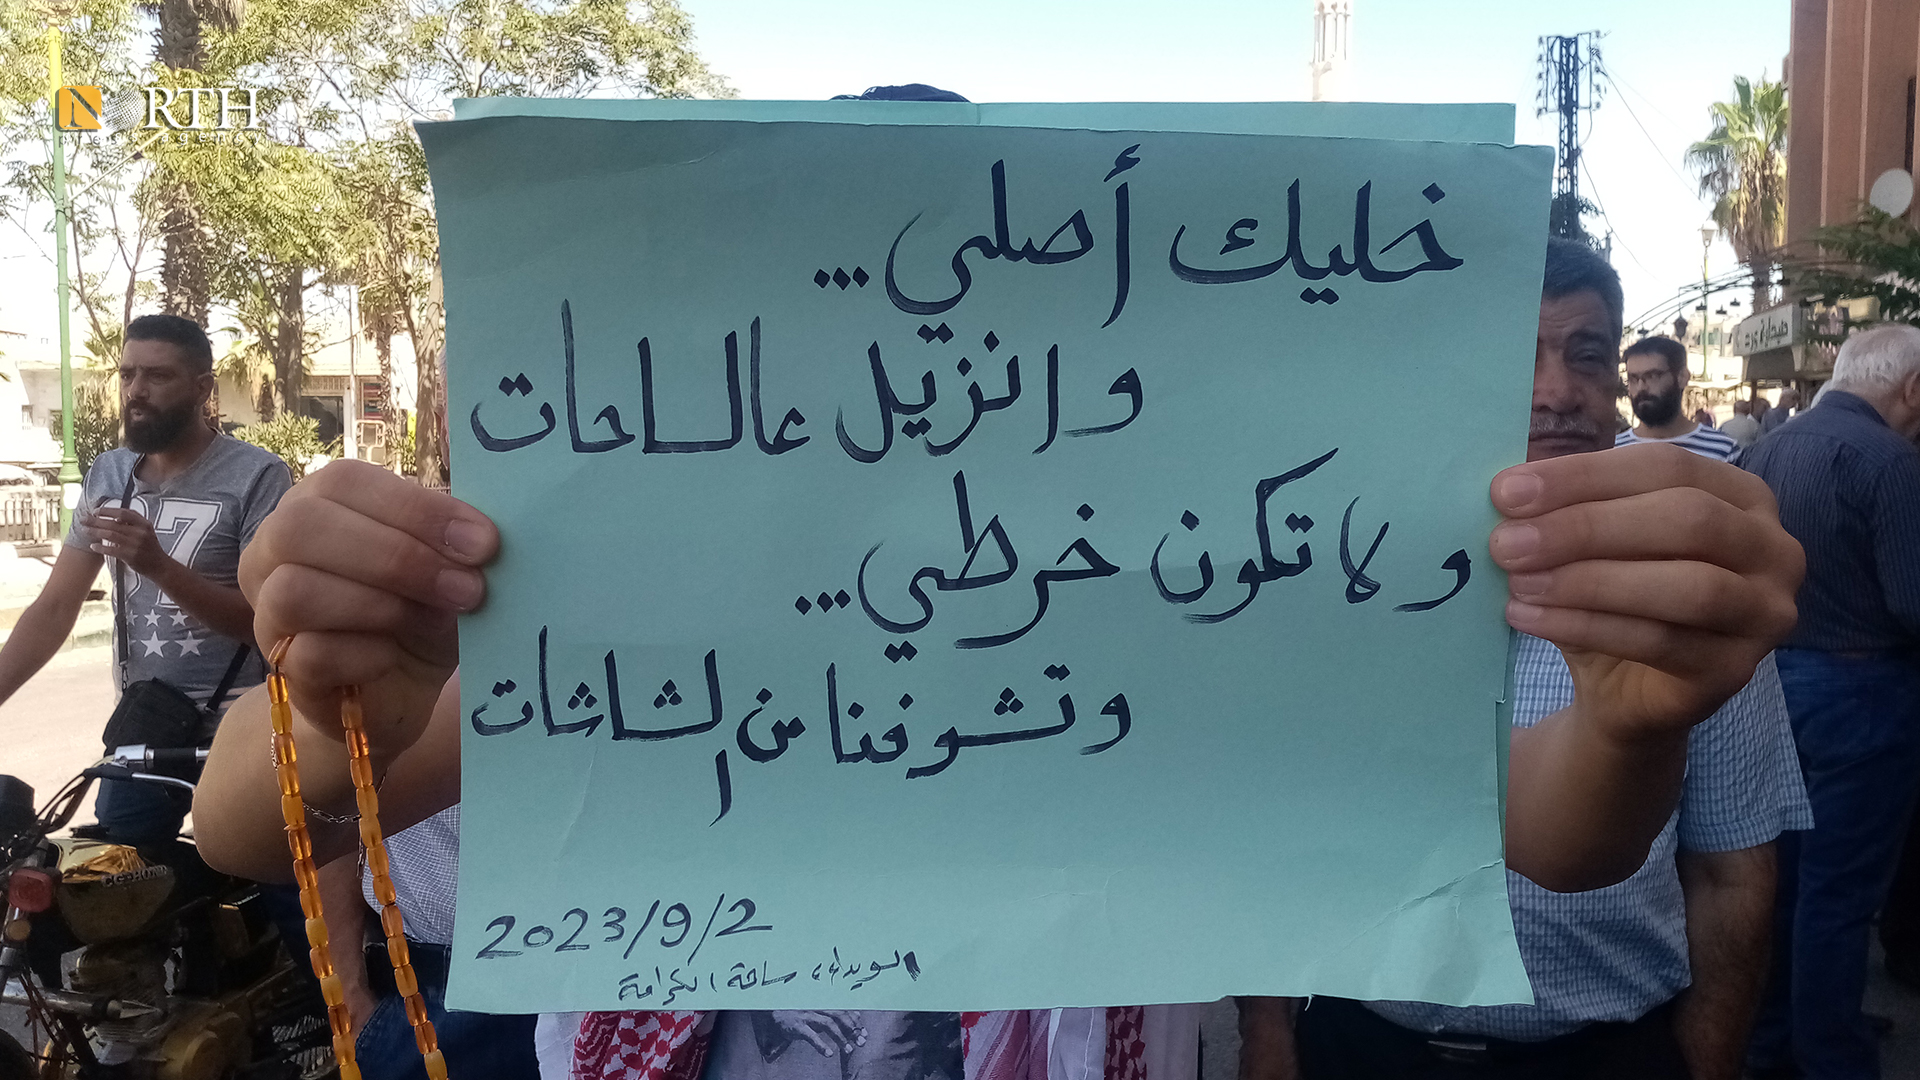 NORTH
press agency
خليك أصلي...
وانزيل عالساحات
ولا تكون خرطي...
وتشوفنا من الشاشات
2023/9/2
السويداء، ساحة الكرامة
87